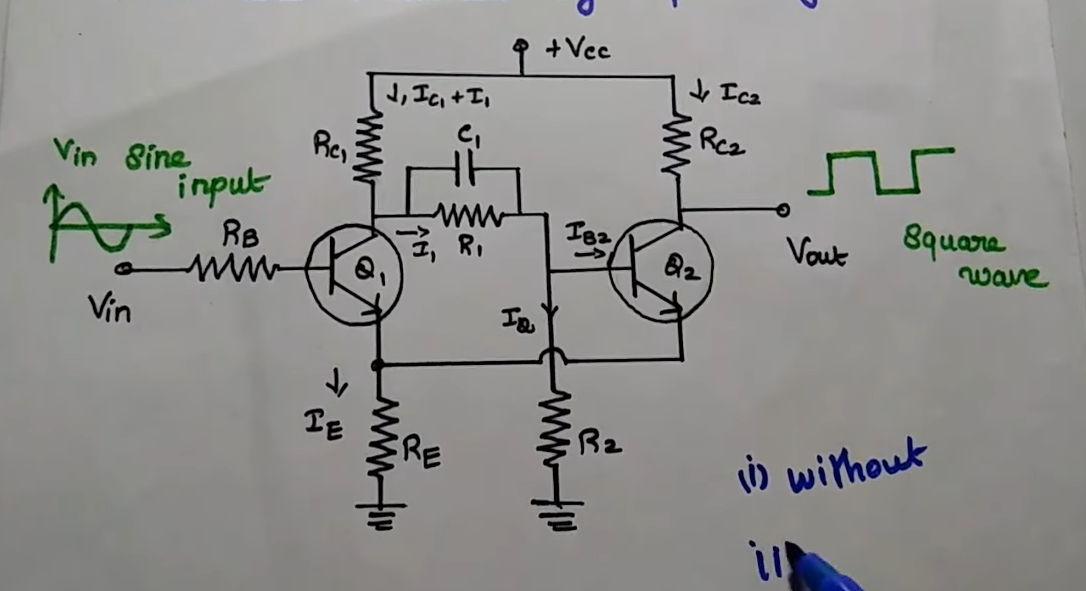 +Vcc
↓, IC1 + I1
↓ IC2
RC1
C1
RC2
Vin sine
input
RB
→ I1
R1
IB2
→
Q1
Q2
Vin
Vout
Square
wave
↓
IE
RE
R2
(i) without